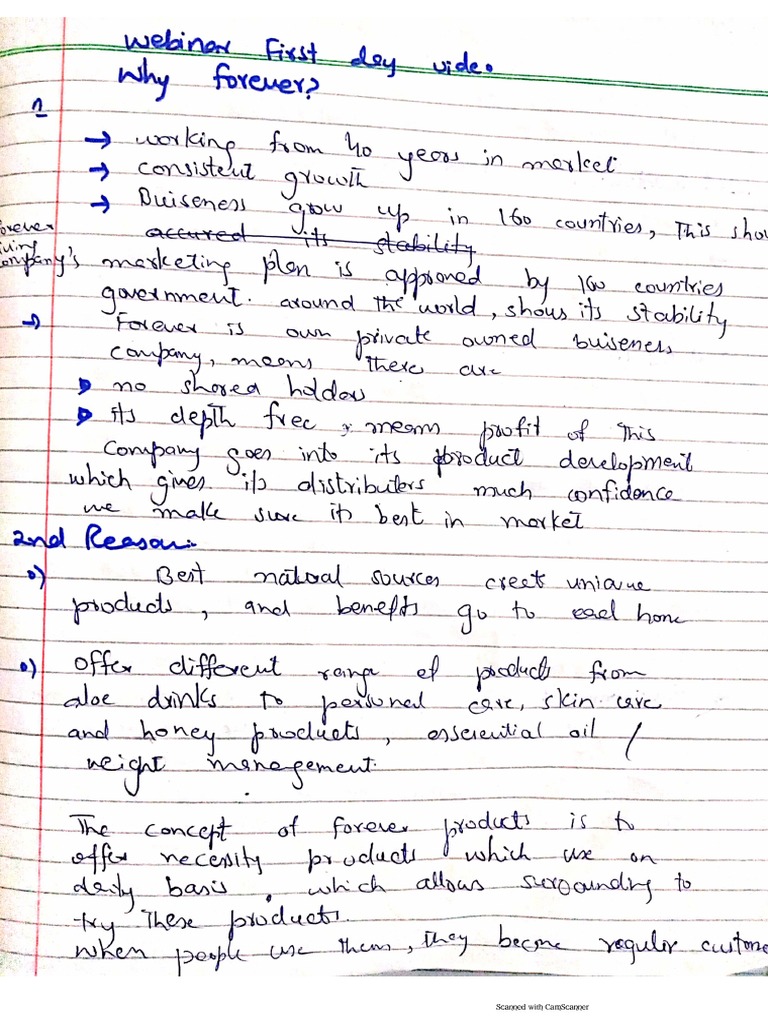 Webinar First day video.
Why forever?
1
→ working from 40 years in market
→ consistent growth
→ Buiseness grow up in 160 countries, This show
accured its stability
forever living company's marketing plan is approved by 160 countries
government. around the world, shows its stability
→ Forever is own private owned buiseness
company, means there are
no shared holders
its depth free, means profit of This
company goes into its product development
which gives its distributers much confidence
we make sure its best in market
2nd Reason:
Best natural sources creet uniqne
products, and benefits go to each home
Offer different range of products from
aloe drinks to personal care, skin care
and honey products, esserential oil /
weight management.
The concept of forever products is to
offer necessity products which use on
daily basis, which allows surrounding to
try These products.
when people use them, they become regular custome
Scanned with CamScanner